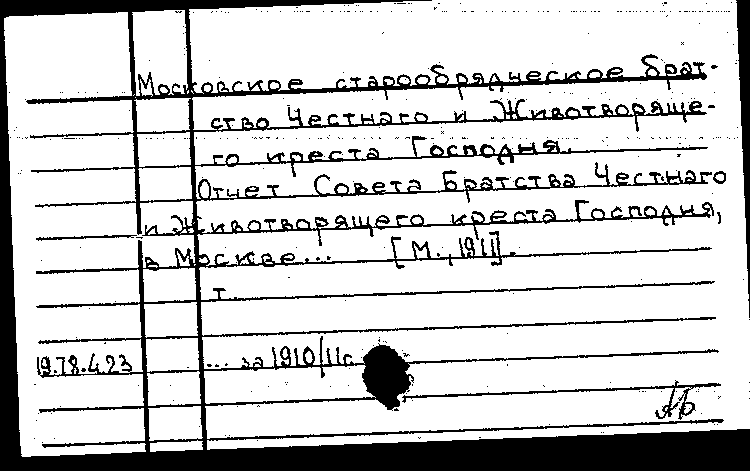 Московское старообрядческое Брат-
ство Честнаго и Животворяще-
го креста Господня.
Отчет Совета Братства Честнаго
и Животворящего креста Господня,
в Москве... [М., 1911].
т.
19.78.4.23 ... за 1910/11г